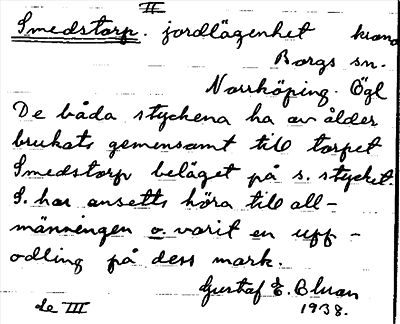 II
Smedstorp. jordlägenhet krono
Borgs sn.
Norrköping. Ögl
De båda styckena ha av ålder
brukats gemensamt till torpet
Smedstorp beläget på s. stycket.
S. har ansetts höra till all-
männingen o. varit en upp-
odling på dess mark.
Gustaf E. Bluan
1938.
de III